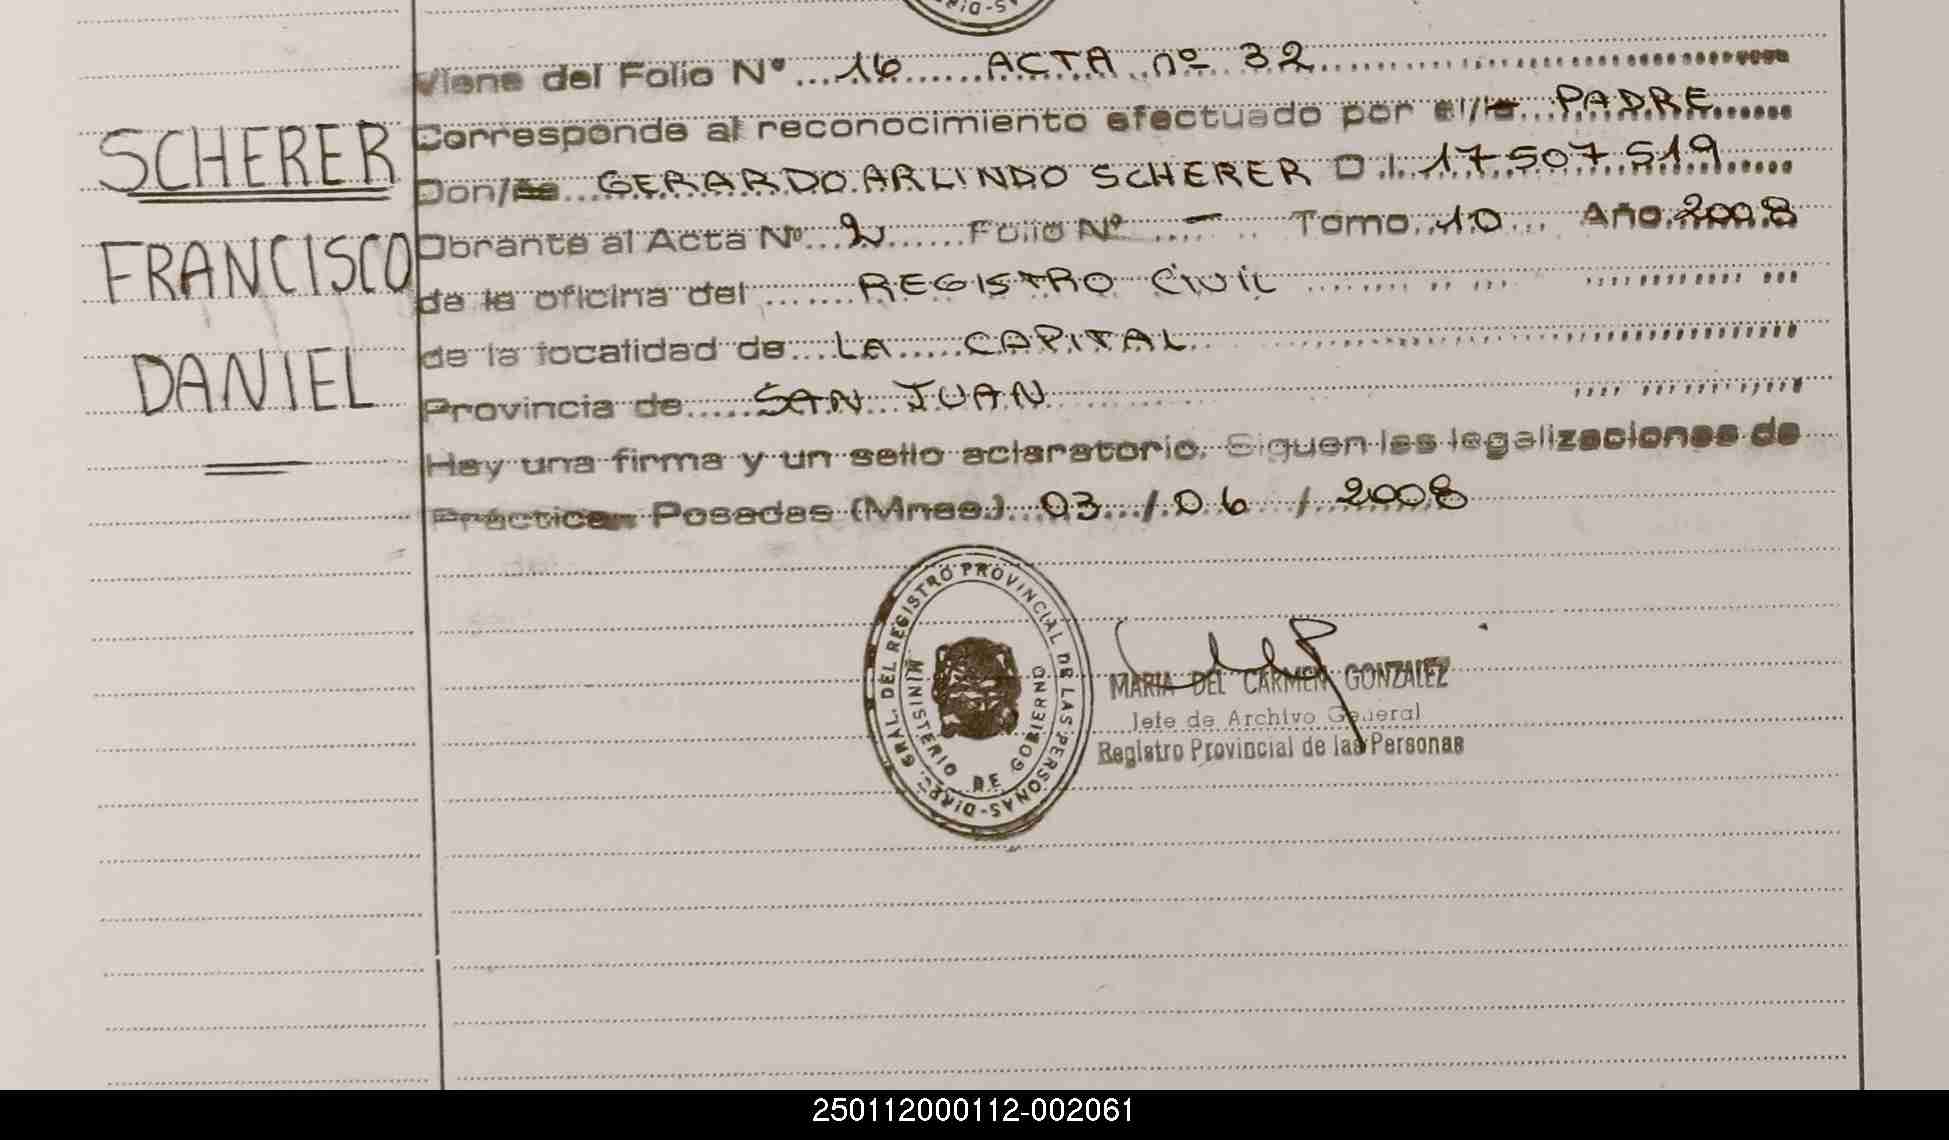 Viene del Folio Nº 16 ACTA nº 32
SCHERER
Corresponde al reconocimiento efectuado por el/la PADRE
Don/ GERARDO ARLINDO SCHERER D.I. 17507519
FRANCISCO
Obrante al Acta Nº 2 Folio Nº - Tomo 10 Año 2008
de la oficina del REGISTRO CIVIL
DANIEL
de la localidad de LA CAPITAL
Provincia de SAN JUAN
Hay una firma y un sello aclaratorio. Siguen las legalizaciones de
Práctica Posadas (Mnes.) 03 / 06 / 2008
DIREC. GRAL. DEL REGISTRO PROVINCIAL DE LAS PERSONAS
MINISTERIO DE GOBIERNO
MARIA DEL CARMEN GONZALEZ
Jefe de Archivo General
Registro Provincial de las Personas
250112000112-002061